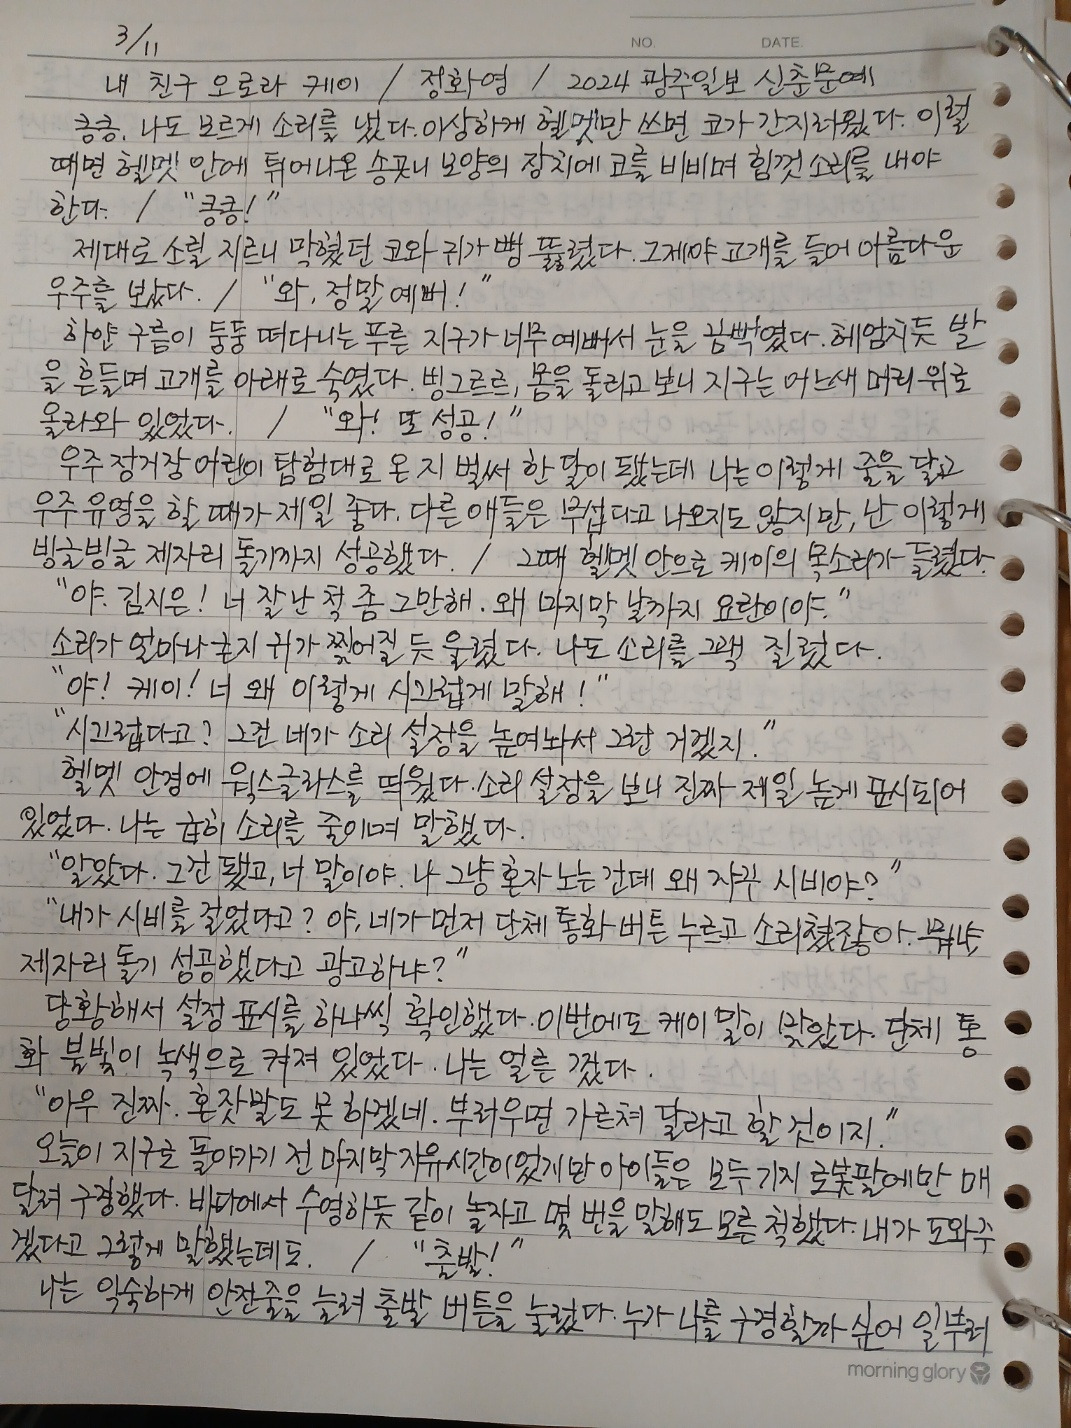 3/11
NO. DATE.
내 친구 오로라 케이 / 정화영 / 2024 광주일보 신춘문예
킁킁. 나도 모르게 소리를 냈다. 이상하게 헬멧만 쓰면 코가 간지러웠다. 이럴
때면 헬멧 안에 튀어나온 송곳니 모양의 장치에 코를 비비며 힘껏 소리를 내야
한다. / "킁킁!"
제대로 소릴 지르니 막혔던 코와 귀가 뻥 뚫렸다. 그제야 고개를 들어 아름다운
우주를 보았다. / "와, 정말 예뻐!"
하얀 구름이 둥둥 떠다니는 푸른 지구가 너무 예뻐서 눈을 끔벅였다. 헤엄치듯 발
을 흔들며 고개를 아래로 숙였다. 빙그르르, 몸을 돌리고 보니 지구는 어느새 머리 위로
올라와 있었다. / "와! 또 성공!"
우주 정거장 어린이 탐험대로 온 지 벌써 한 달이 됐는데 나는 이렇게 줄을 달고
우주 유영을 할 때가 제일 좋다. 다른 애들은 무섭다고 나오지도 않지만, 난 이렇게
빙글빙글 제자리 돌기까지 성공했다. / 그때 헬멧 안으로 케이의 목소리가 들렸다.
"야. 김지은! 너 잘난 척 좀 그만해. 왜 마지막 날까지 요란이야."
소리가 얼마나 큰지 귀가 찢어질 듯 울렸다. 나도 소리를 그랙 질렀다.
"야! 케이! 너 왜 이렇게 시끄럽게 말해!"
"시끄럽다고? 그건 네가 소리 설정을 높여놔서 그런 거겠지."
헬멧 안경에 윅스글라스를 띄웠다. 소리 설정을 보니 진짜 제일 높게 표시되어
있었다. 나는 급히 소리를 줄이며 말했다.
"알았다. 그건 됐고, 너 말이야. 나 그냥 혼자 노는 건데 왜 자꾸 시비야?"
"내가 시비를 걸었다고? 야, 네가 먼저 단체 통화 버튼 누르고 소리쳤잖아. 뭐냐
제자리 돌기 성공했다고 광고하냐?"
당황해서 설정 표시를 하나씩 확인했다. 이번에도 케이 말이 맞았다. 단체 통
화 불빛이 녹색으로 켜져 있었다. 나는 얼른 껐다.
"아우 진짜. 혼잣말도 못 하겠네. 부러우면 가르쳐 달라고 할 것이지."
오늘이 지구로 돌아가기 전 마지막 자유시간이었지만 아이들은 모두 기지 로봇팔에만 매
달려 구경했다. 바다에서 수영하듯 같이 놀자고 몇 번을 말해도 모른 척했다. 내가 도와주
겠다고 그렇게 말했는데도. / "출발!"
나는 익숙하게 안전줄을 늘려 출발 버튼을 눌렀다. 누가 나를 구경할까 싶어 일부러
morning glory